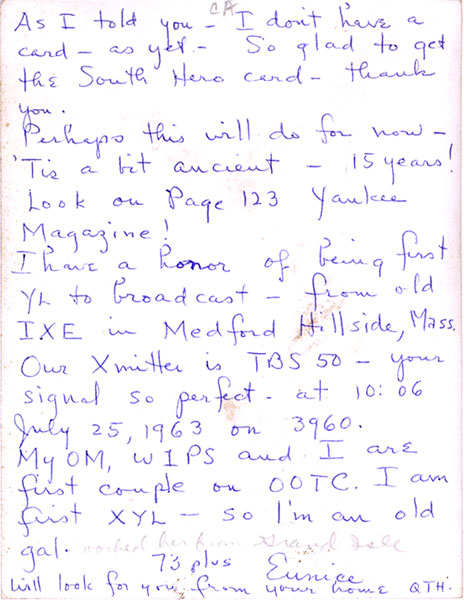 CA
As I told you - I don't have a
card - as yet - So glad to get
the South Hero card - thank
you.
Perhaps this will do for now -
'Tis a bit ancient - 15 years!
Look on Page 123 Yankee
Magazine!
I have a honor of being first
YL to broadcast - from old
1XE in Medford Hillside, Mass.
Our Xmitter is TBS 50 - your
signal so perfect - at 10:06
July 25, 1963 on 3960.
My OM, W1PS and I are
first couple on OOTC. I am
first XYL - so I'm an old
gal. worked her from Grand Isle
73 plus
Eunice
will look for you from your home QTH.